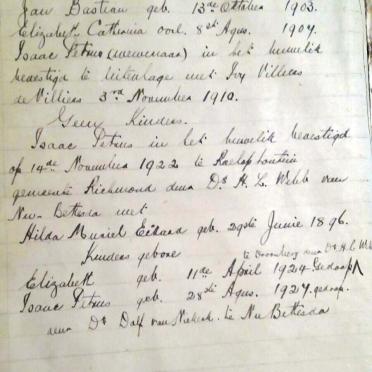 Jan Bastian geb. 13de Oktober 1903.
Elizabeth Catharina overl. 8ste Agus. 1907.
Isaac Petrus (wewenaar) in het huwelik
bevestigd te Uitenhage met Ivy Villiers
de Villiers 3rd November 1910.
Geen Kinders.
Isaac Petrus in het huwelik bevestigd
op 14de November 1922 te
gemeente Richmond deur Ds. H. L. Webb van
Nu-Bethesda met
Hilda Muriel geb. 29ste Junie 1896.
Kinders gebore
te deur Ds H. L. Webb
Elizabeth geb. 11de April 1924 Gedoop
Isaac Petrus geb. 28ste Agus. 1927. gedoop
deur Ds van Niekerk te Nu Bethesda